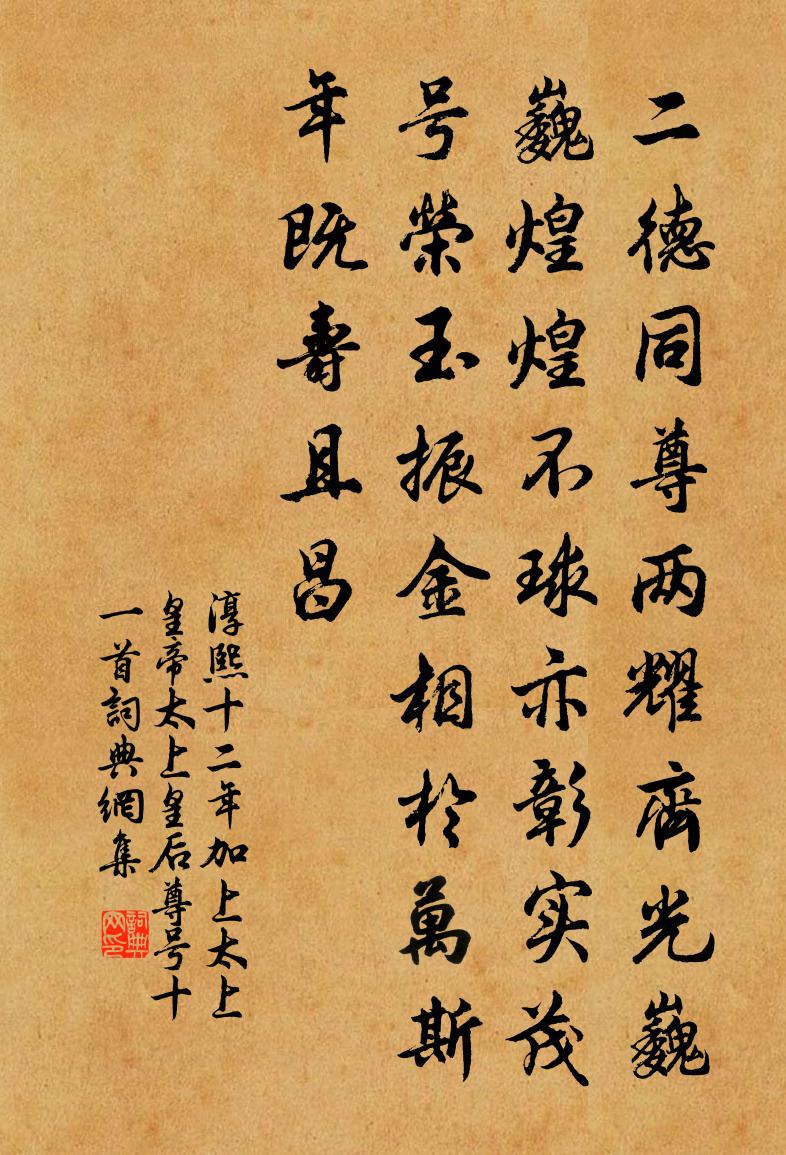 二德同尊两耀齊光巍
巍煌煌不球亦彰实茂
号榮玉振金相於萬斯
年既壽且昌
淳熙十二年加上太上
皇帝太上皇后尊号十
一首詞典網集
詞典
网印